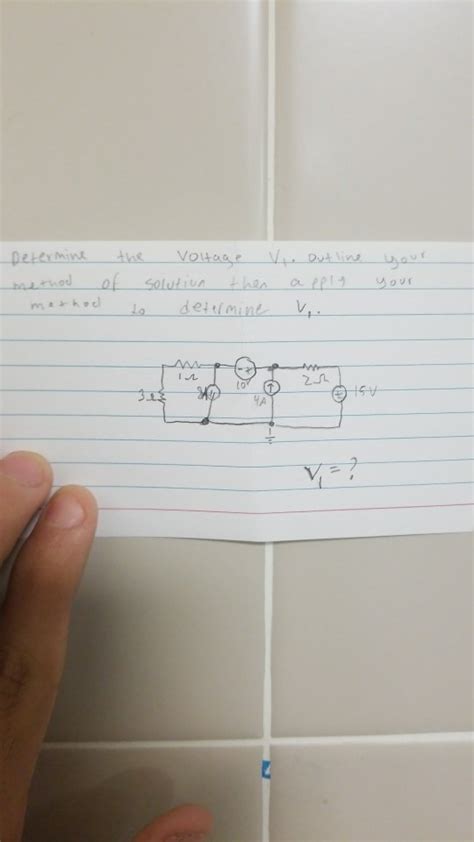 Determine the Voltage V₁. outline your
method of solution then apply your
method to determine V₁.
1Ω
- +
10
2Ω
3Ω
4A
15V
V₁ = ?